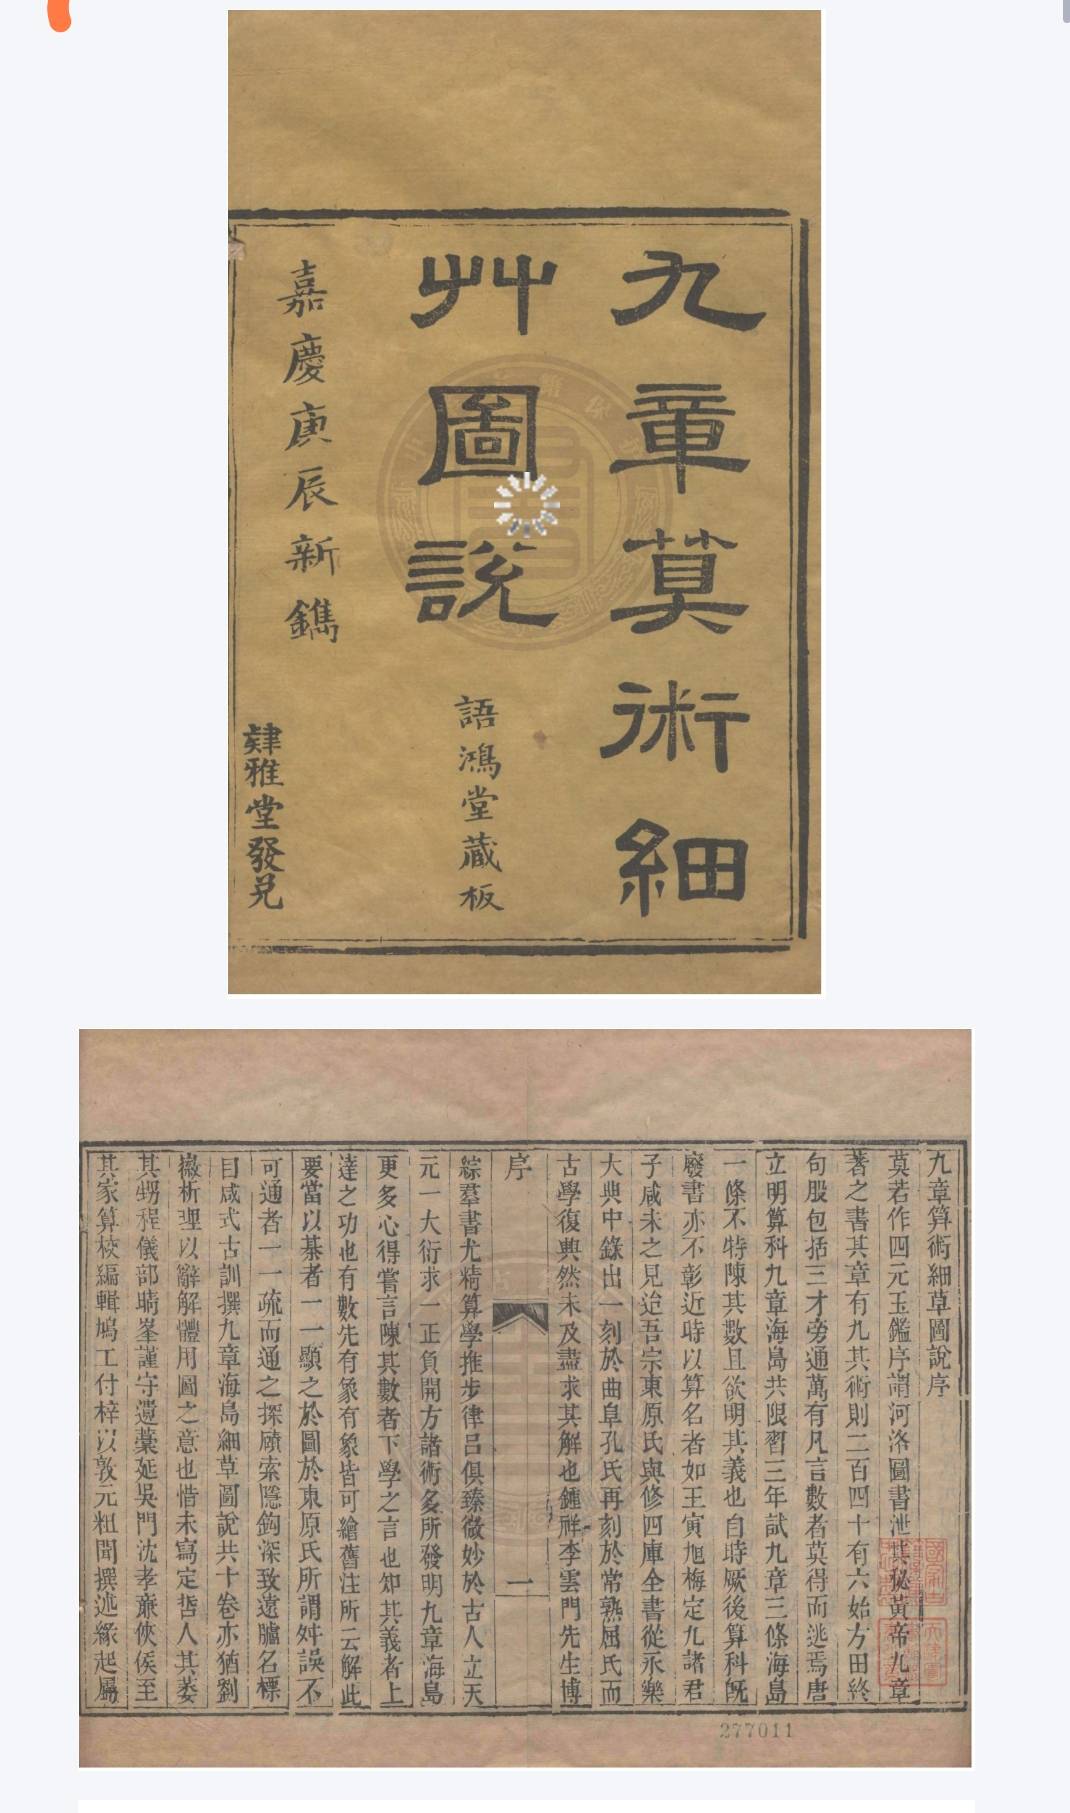 九章筭術細
艸圖說
語鴻堂藏板
嘉慶庚辰新鐫
肄雅堂發兌
九章算術細草圖說序
莫若作四元玉鑑序謂河洛圖書泄其秘黃帝九章
著之書其章有九其術則二百四十有六始方田終
句股包括三才旁通萬有凡言數者莫得而逃焉唐
立明算科九章海島共限習三年試九章三條海島
一條不特陳其數且欲明其義也自時厥後算科旣
廢書亦不彰近時以算名者如王寅旭梅定九諸君
子咸未之見迨吾宗東原氏與修四庫全書從永樂
大典中錄出一刻於曲阜孔氏再刻於常熟屈氏而
古學復興然未及盡求其解也鍾祥李雲門先生博
序
一
綜羣書尤精算學推步律呂俱臻微妙於古人立天
元一大衍求一正負開方諸術多所發明九章海島
更多心得嘗言陳其數者下學之言也知其義者上
達之功也有數先有象有象皆可繪舊注所云解此
要當以棊者一一顯之於圖於東原氏所謂舛誤不
可通者一一疏而通之探賾索隱鉤深致遠臚名標
目咸式古訓撰九章海島細草圖說共十卷亦猶劉
徽析理以辭解體用圖之意也惜未寫定哲人其萎
其甥程儀部晴峯謹守遺藁延吳門沈孝廉俠侯至
其家算校編輯鳩工付梓以敦元粗聞撰述緣起屬
277011